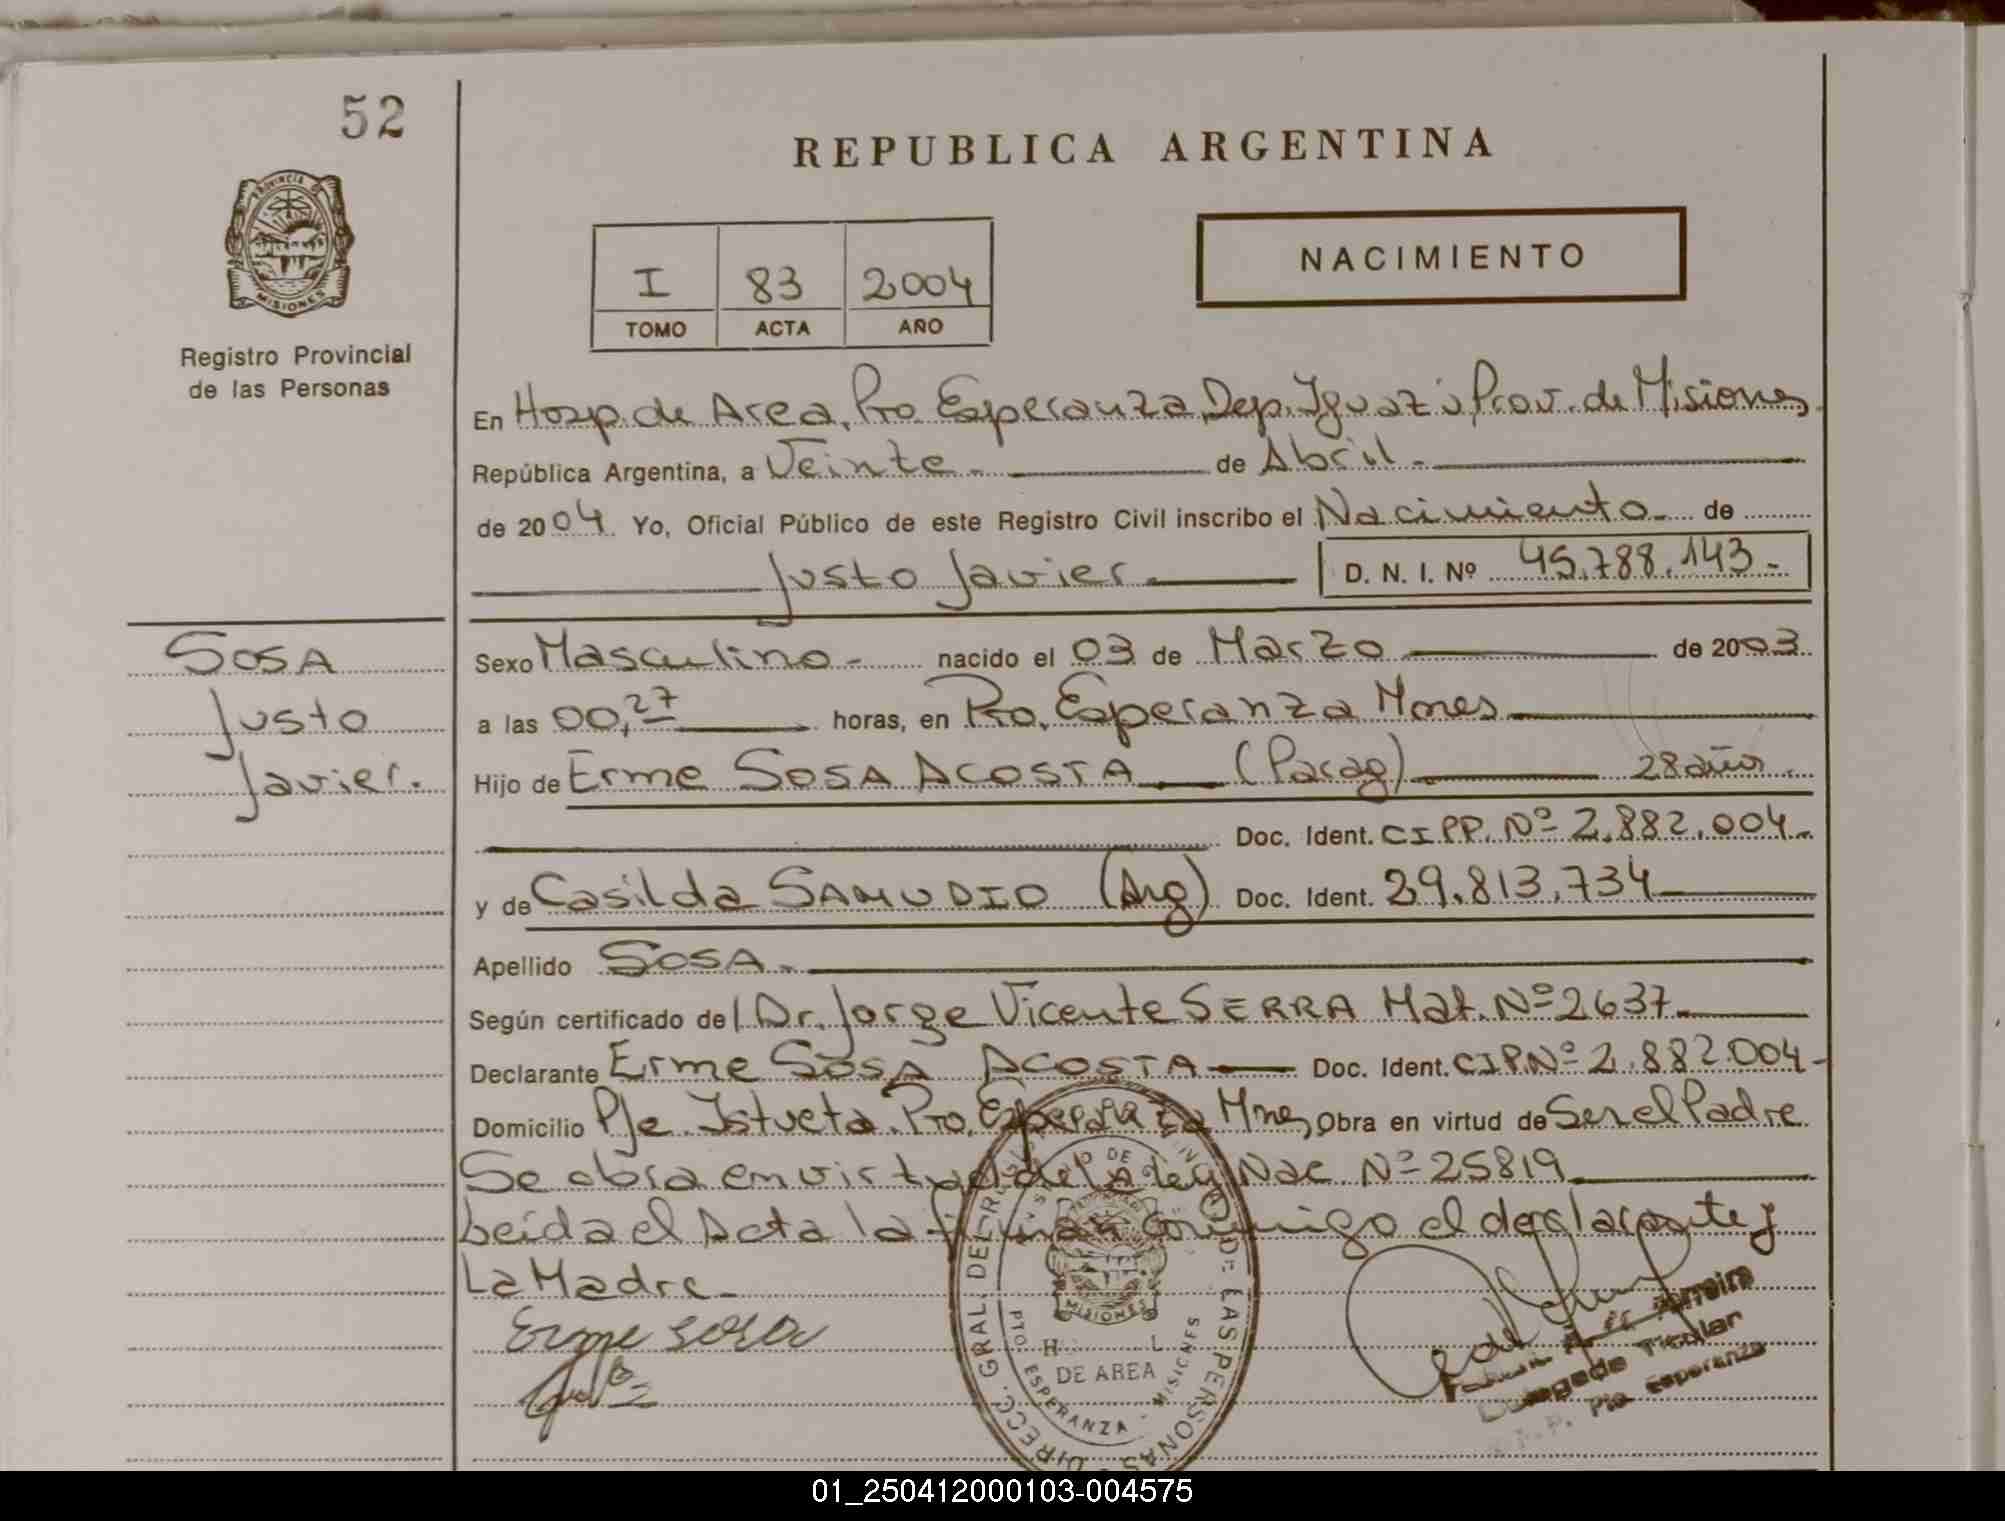 52
REPUBLICA ARGENTINA
PROVINCIA D
MISIONES
Registro Provincial
de las Personas
I 83 2004
TOMO ACTA AÑO
NACIMIENTO
En Hosp. de Area, Pto. Esperanza, Dep. Iguazú, Prov. de Misiones
República Argentina, a Veinte - de Abril -
de 2004. Yo, Oficial Público de este Registro Civil inscribo el Nacimiento - de
Justo Javier. D. N. I. Nº 45.788.143-
SOSA
Justo
Javier.
Sexo Masculino - nacido el 03 de Marzo de 2003.
a las 00,27 horas, en Pto. Esperanza Mnes
Hijo de Erme SOSA ACOSTA (Parag) 28 años
Doc. Ident. C.I.P.P. Nº 2.882.004-
y de Casilda SAMUDIO (Arg) Doc. Ident. 29.813.734
Apellido SOSA.
Según certificado del Dr. Jorge Vicente SERRA Mat. Nº 2637
Declarante Erme SOSA ACOSTA Doc. Ident. C.I.P. Nº 2.882.004-
Domicilio Pje. Pto. Esperanza Mnes, Obra en virtud de Ser el Padre
Se obra en virtud de la ley Nac Nº 25819
Leida el Acta la firman conmigo el declarante y
La Madre -
Erme sosa
DIRECC. GRAL. DEL DE LAS PERSONAS
MISIONES
DE AREA
PTO. ESPERANZA - MISIONES
Titular
Pto Esperanza
01_250412000103-004575